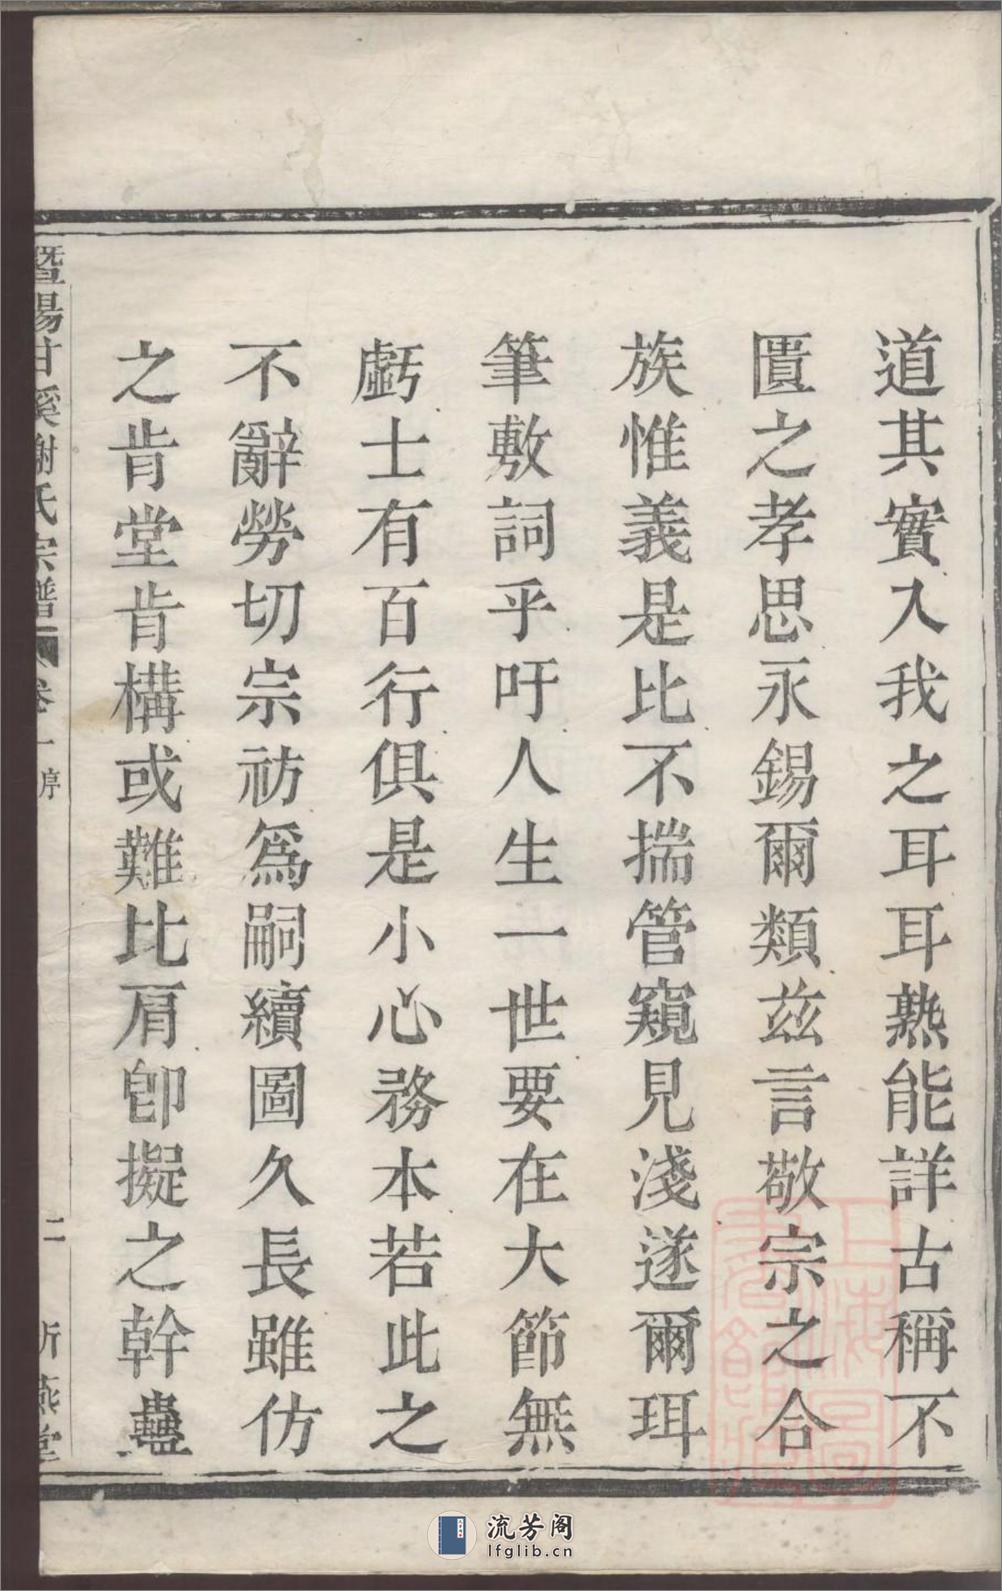 道其實入我之耳耳熟能詳古稱不
匱之孝思永錫爾類茲言敬宗之合
族惟義是比不揣管窺見淺遂爾珥
筆敷詞乎吁人生一世要在大節無
虧士有百行俱是小心務本若此之
不辭勞切宗祊爲嗣續圖久長雖仿
之肯堂肯構或難比肩卽擬之幹蠱
暨陽甘溪謝氏宗譜 卷一 序 二
流芳阁
lfglib.cn